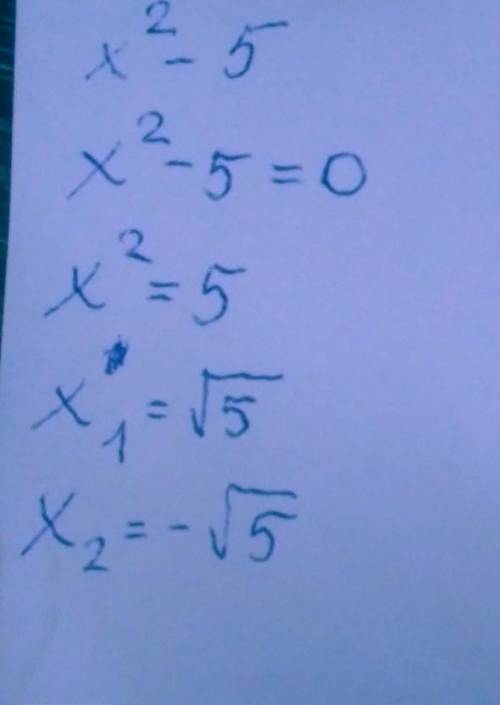 x² - 5
x² - 5 = 0
x² = 5
x₁ = √5
x₂ = -√5